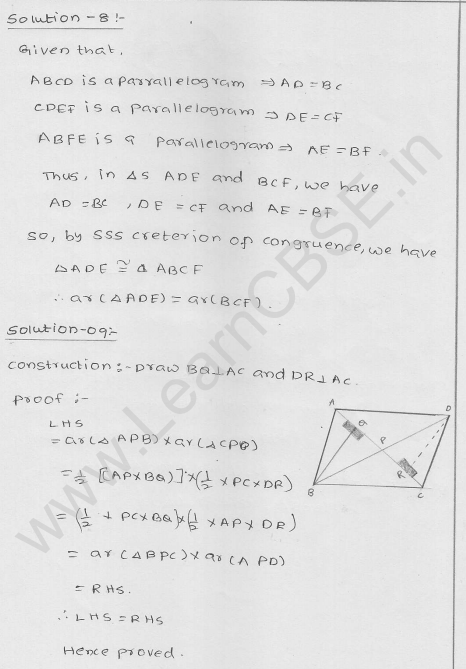 Solution-8:-
Given that,
ABCD is a parrallelogram ⇒ AD = BC
CDEF is a parallelogram ⇒ DE = CF
ABFE is a parallelogram ⇒ AE = BF.
Thus, in Δs ADE and BCF, we have
AD = BC, DE = CF and AE = BF
So, by SSS creterion of congruence, we have
Δ ADE ≅ Δ ABCF
∴ ar(ΔADE) = ar(BCF).
Solution-09:-
Construction:- Draw BQ⊥AC and DR⊥AC.
Proof :-
LHS
= ar(Δ APB) × ar(ΔCPD)
= 1/2 [AP×BQ)] × (1/2 × PC × DR)
= (1/2 × PC × BQ) × (1/2 × AP × DR)
= ar (ΔBPC) × ar(Δ PD)
= RHS.
∴ LHS = RHS
Hence proved.
A
D
Q
P
R
B
C
www.LearnCBSE.in